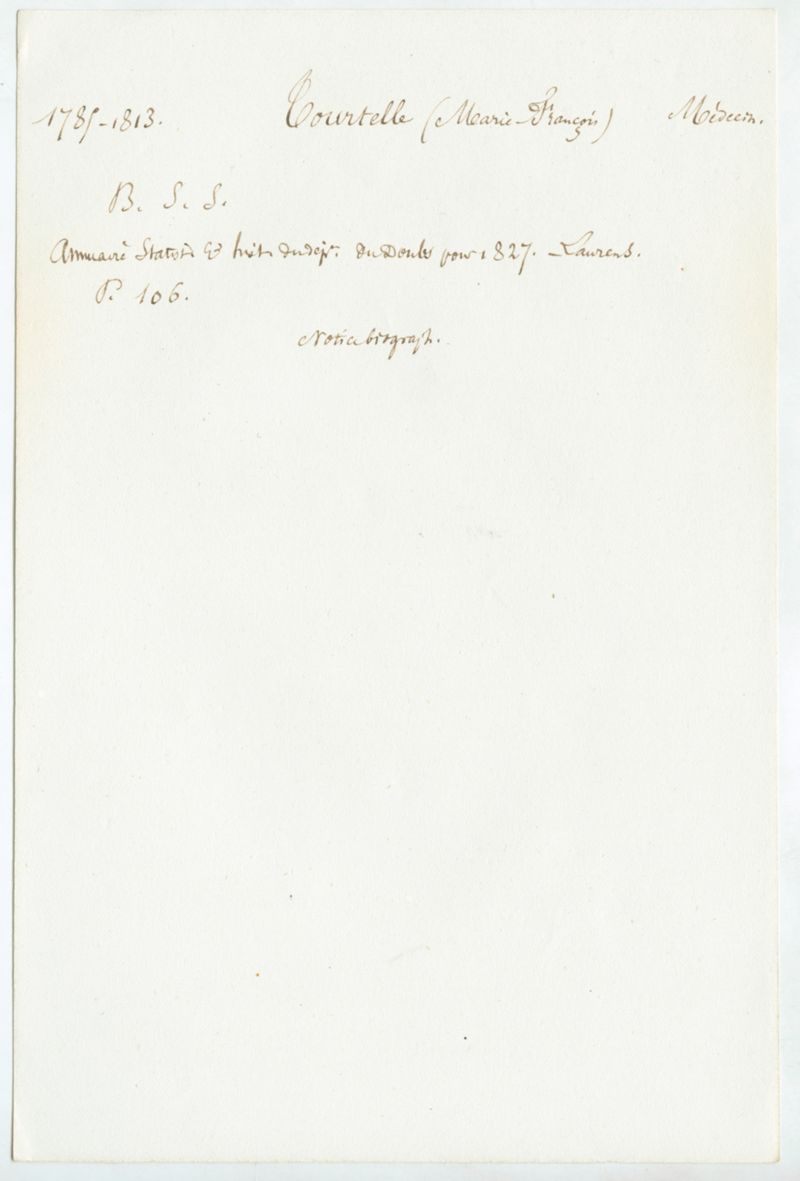 1785-1813. Tourtelle (Marie-François) Médecin.
B. S. S.
Annuaire Statist. & hist. du dépt. du Doubs pour 1827. Laurens.
P. 106.
Notice biograph.